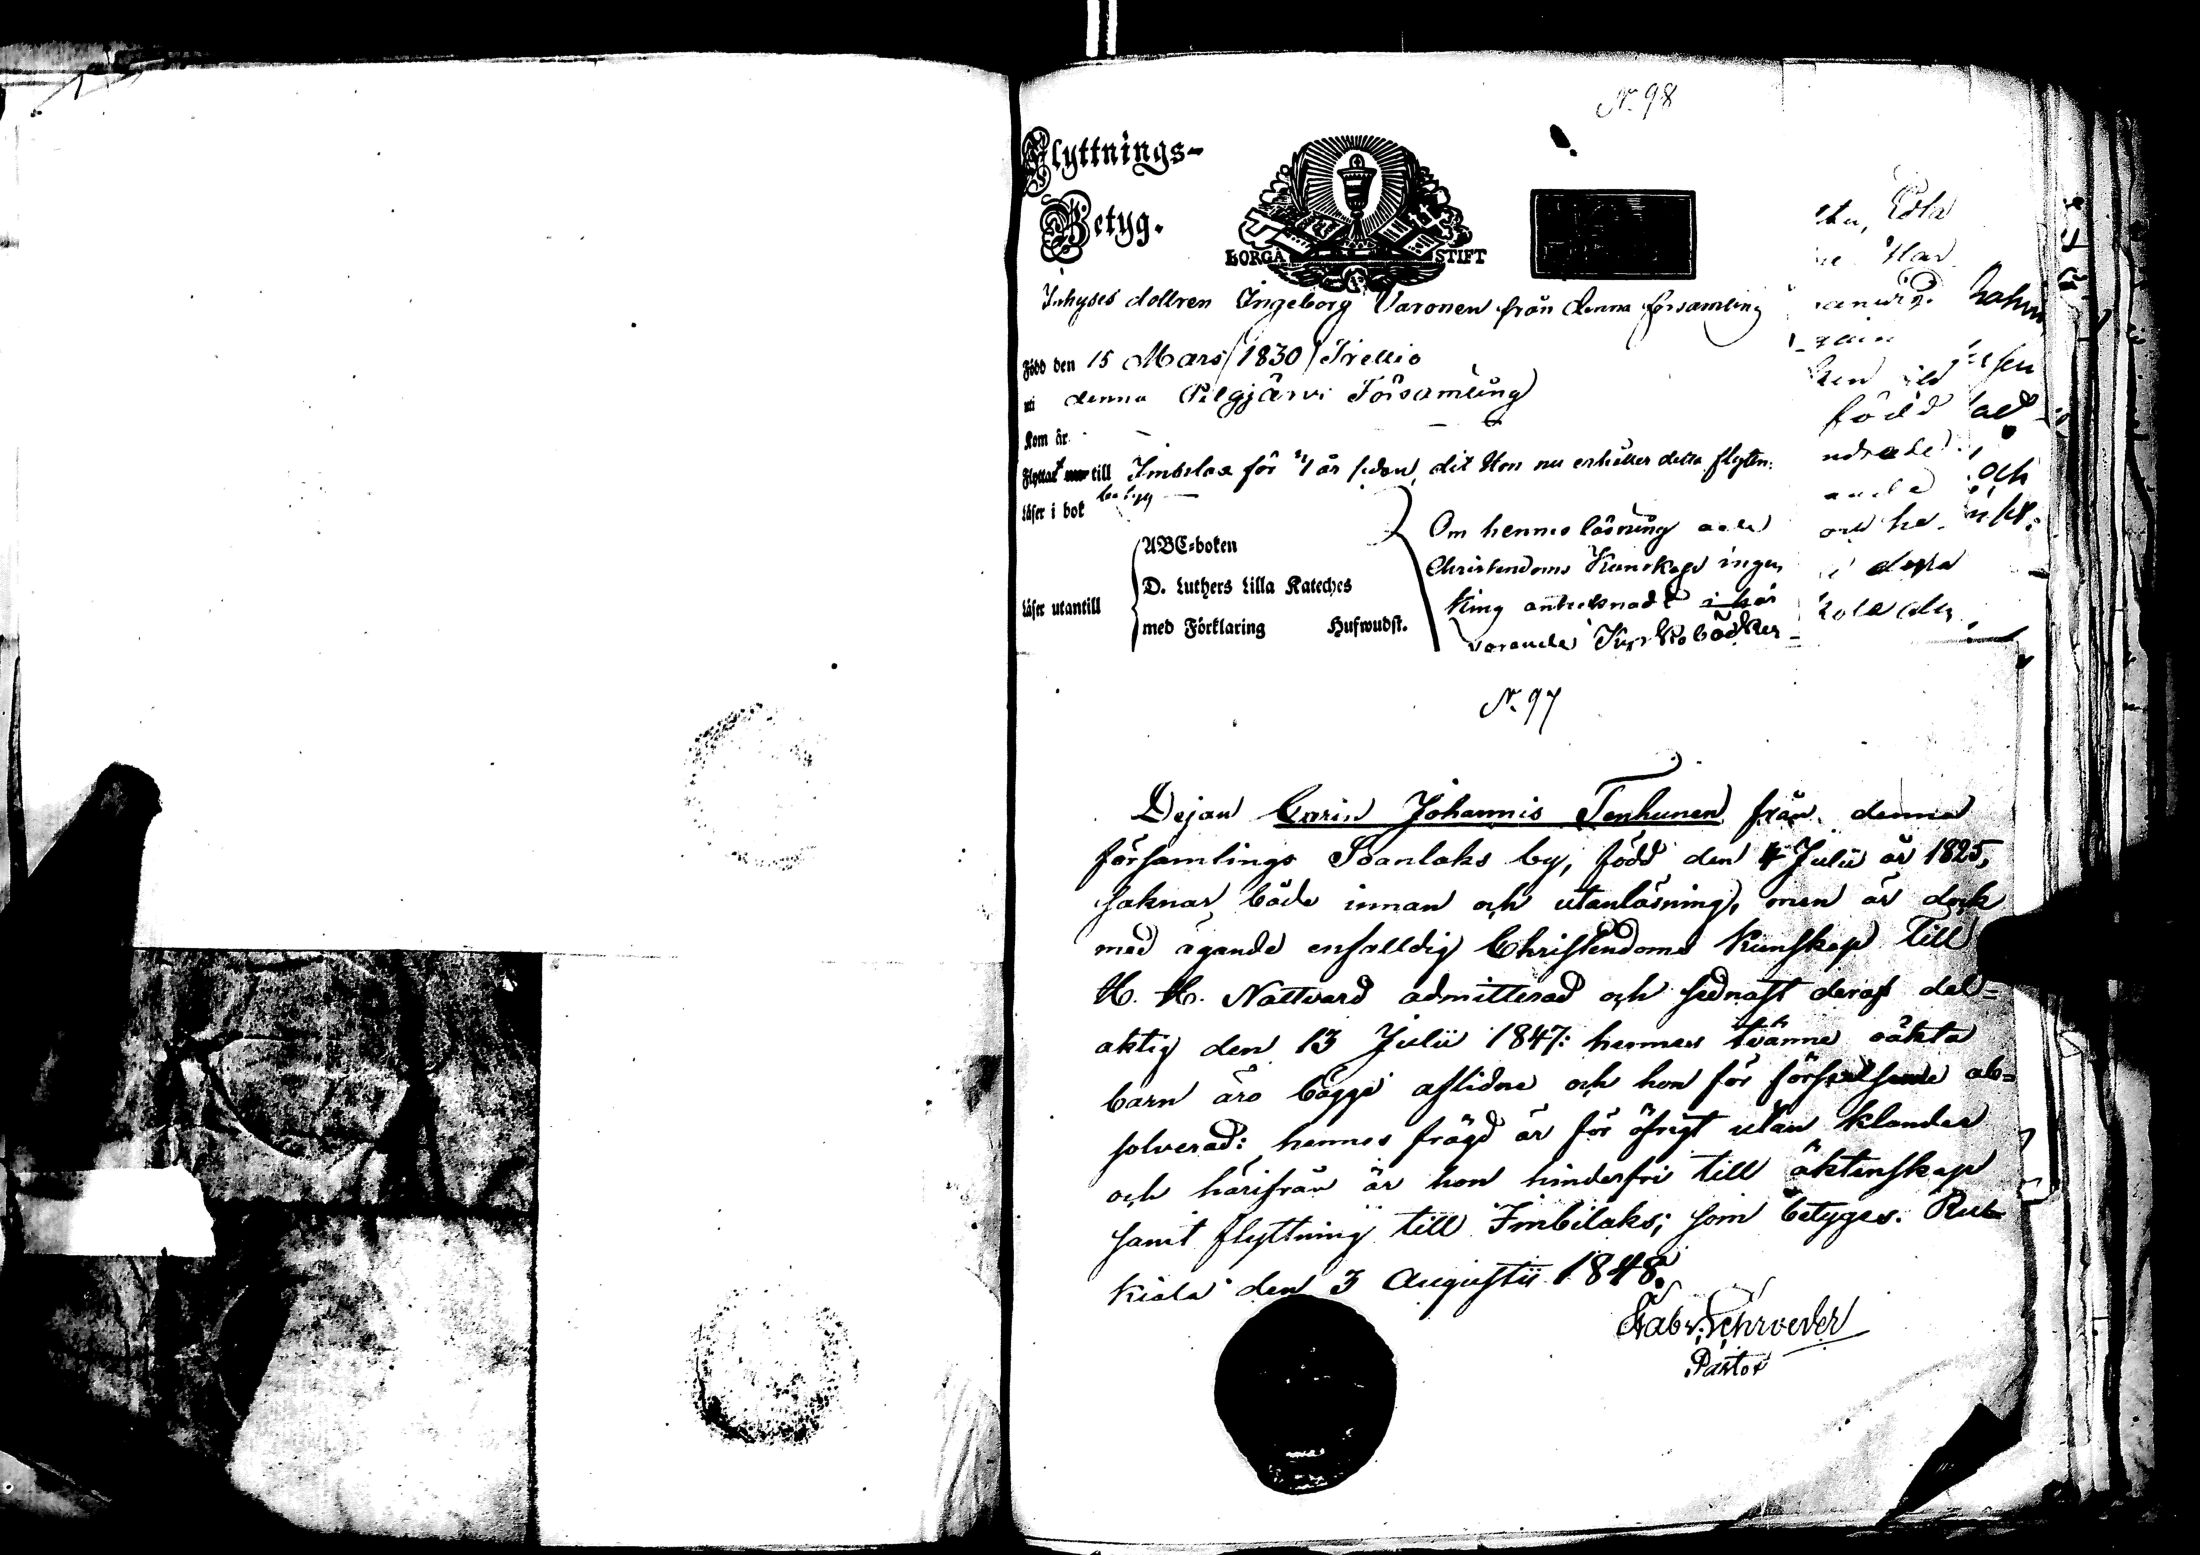 N. 98
Flyttnings-
Betyg.
BORGÅ STIFT
Inhyses dottren Ingeborg Varonen från denna församling
Född den 15 Mars 1830
uti denna Pelgjärvi Församling
Kom år
Flyttat till Imbilax för år sedan, dit Hon nu erhåller detta flyttn:
betyg
Läser i bok
ABC-boken
D. Luthers Lilla Kateches
Läser utantill
med Förklaring Hufwudst.
Om hennes läsning och
Christendoms Kunskap ingen
ting antecknadt i här
varande Kyrkoböcker
född
och
N. 97
Pejan Carin Johannis Tenhunen från denna
församlings Soanlaks by, född den 4 Julii år 1825,
saknar både innan och utanläsning, men är dock
med ägande enfalldig Christendoms kunskap till
H. H. Nattvard admitterad och sednast deraf del=
aktig den 13 Julii 1847: hennes tvänne oäkta
barn äro bägge aflidne och hon för förseelserne ab=
solverad: hennes frägd är för öfrigt utan klander
och härifrån är hon hinderfri till äktenskap
samt flyttning till Imbilaks; som betyges. Rus-
kiala den 3 Augustii 1848.
Gabr. Schroeder
Pastor